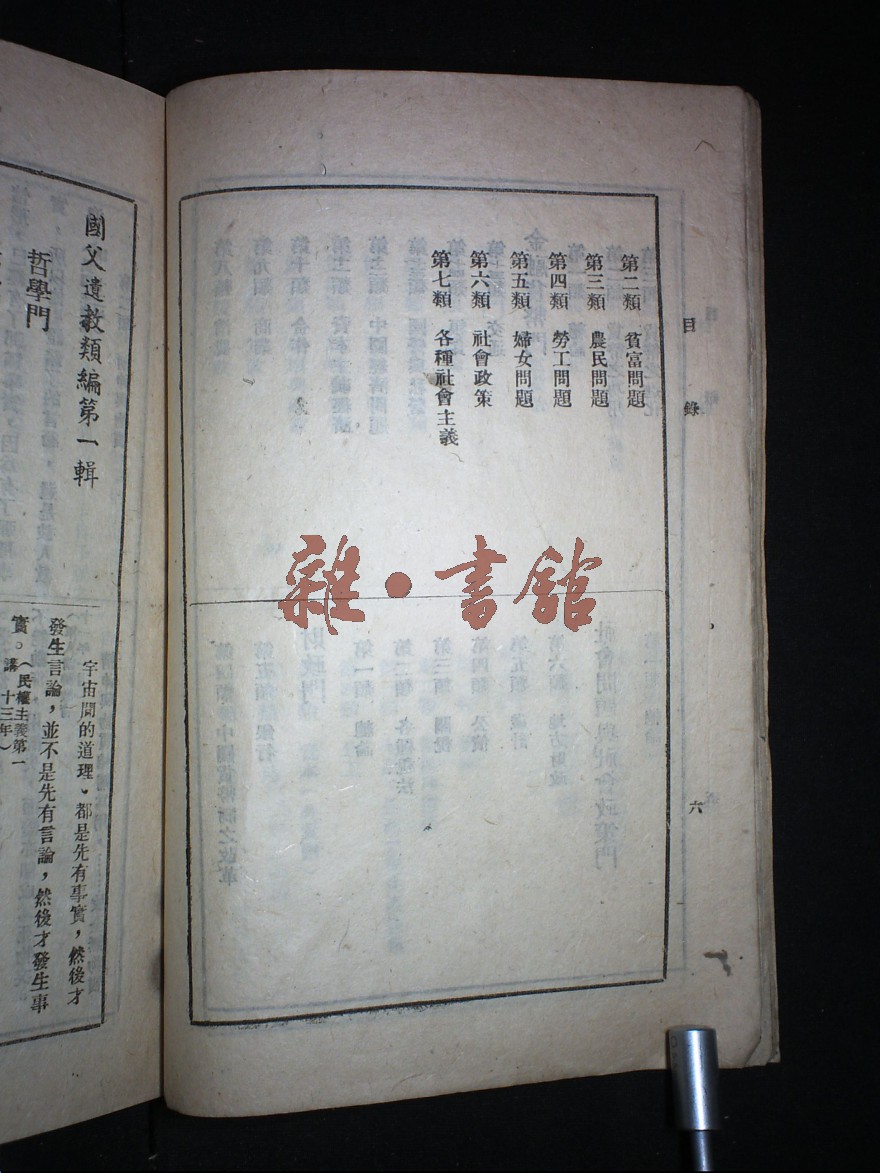 目錄
六
第二類 貧富問題
第三類 農民問題
第四類 勞工問題
第五類 婦女問題
第六類 社會政策
第七類 各種社會主義
雜・書館
國父遺教類編第一輯
哲學門
宇宙間的道理，都是先有事實，然後才
發生言論，並不是先有言論，然後才發生事
實。（民權主義第一
講 十三年）